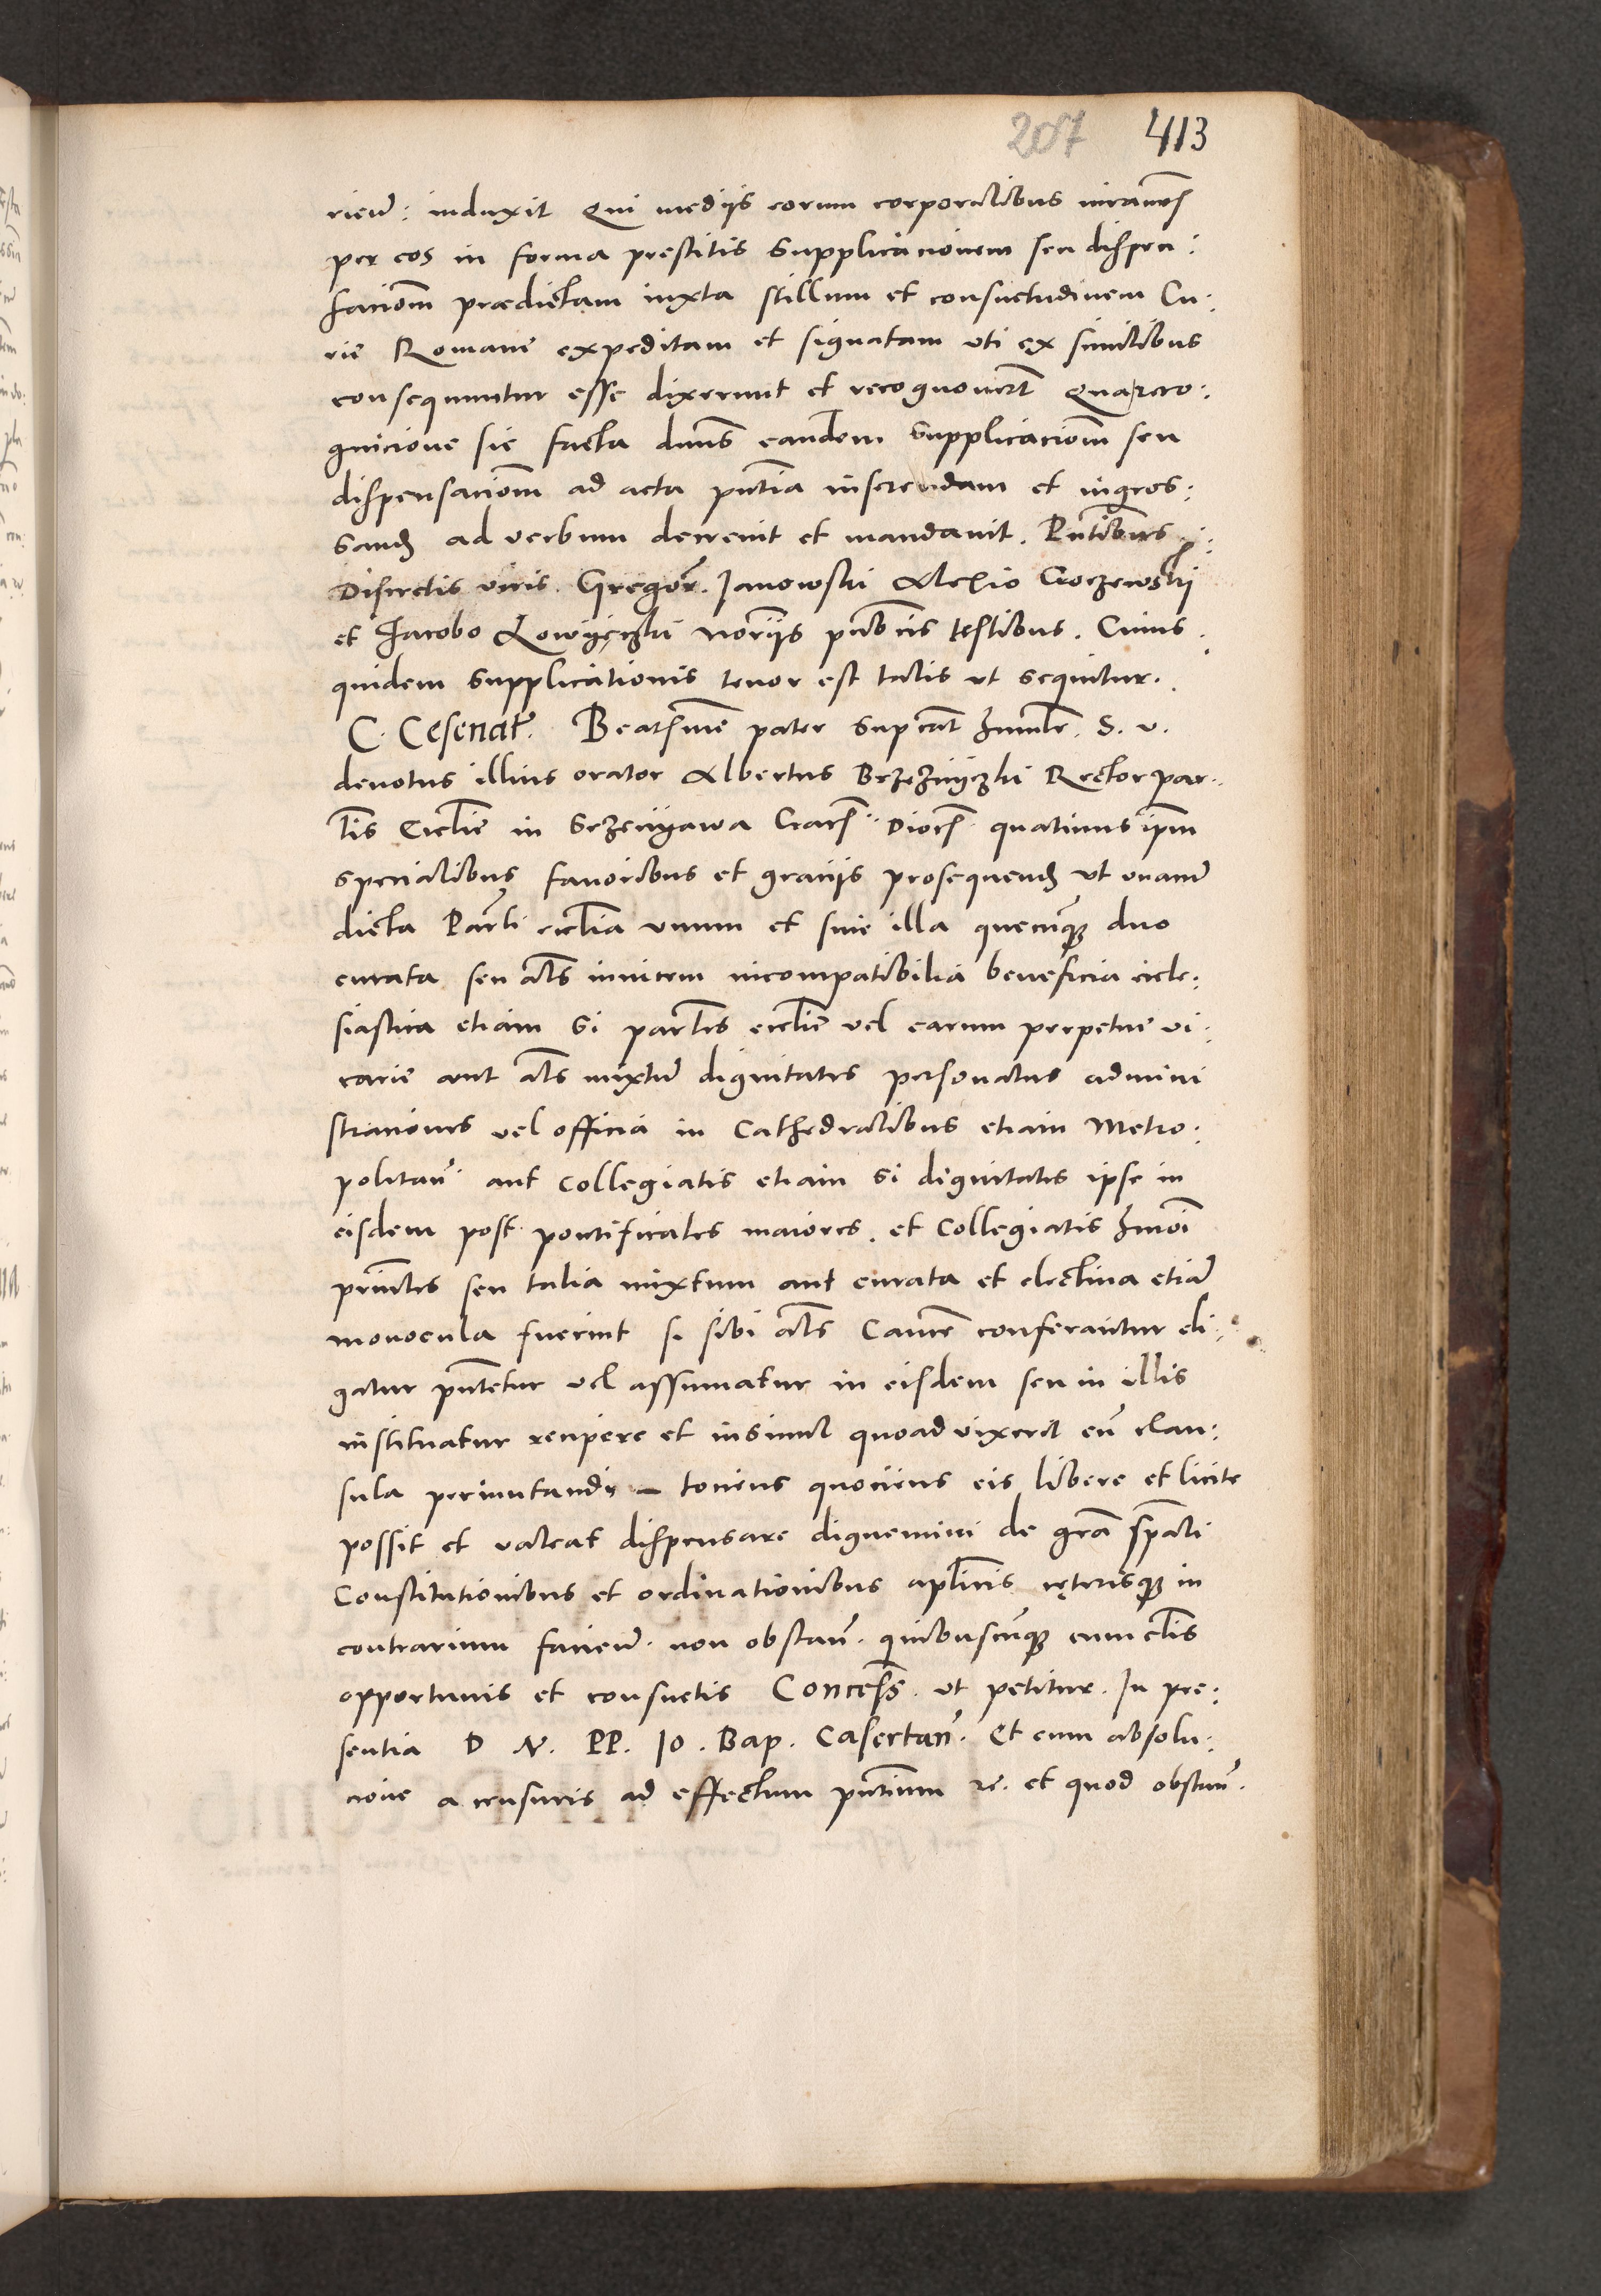 207 413
ricum: induxit Qui medijs eorum corporalibus iuramen͂
per eos in forma prestitis Supplicacionem seu dispen:
saciom̄ praedictam iuxta stillum et consuetudinem Cu:
rie Romane expeditam et signatam uti ex similibus
consequuntur esse dixerunt et recognovert̄ Qua reco:
gnicione sic facta dūns eandem Supplicaciom̄ seu
dispensaciom̄ ad acta pn̄tia inserendam et ingros:
sand͂ ad verbum decrevit et mandavit. Pn̄tibus:
Discretis viris. Gregor͂. Janowski Alexio Croczewskij
et Jacobo Lowijczki nor̄ijs pub͂cis testibus. Cuius
quidem Supplicationis tenor est talis ut sequitur.
C. Cesenat͂. Beatis͂me pater Sup͂cat humilr͂. S. v.
devotus illius orator Albertus Brzeznijczki Rector par..
l͂is Ecclie in Brzenijawa Crac͂. Dioc͂ quatinus ip͂m
specialibus favoribus et gracijs prosequend͂ ut unacu͂
dicta Parl͂i eccl͂ia unum et sine illa quecu͂q͂ duo
curata seu al͂s invicem incompatibilia beneficia eccle:
siastica etiam si parl͂es eccl͂ie vel earum perpetue vi:
carie aut al͂s mixtu͂ dignitates personatus admini
straciones vel officia in Cathedralibus etiam Metro:
politan͂ aut Collegiatis etiam si dignitates ipse in
eisdem post pontificales maiores. et Collegiatis hm͂oi
prin͂cles seu talia mixtum aut curata et electiva etia͂
monocula fuerint si sibi al͂s Canice͂ conferantur eli:
gatur pn͂tetur vel assumatur in eisdem seu in illis
instituatur recipere et insimul quoad vixerit cu͂ clau:
sula permutandi – tociens quociens eis libere et licite
possit et valeat dispensare dignemini de gr͂a sp͂ali
Constitutionibus et ordinationibus apl͂icis ceterisq͂ in
contrarium facien͂. non obstan͂. quibuscu͂q͂ cum cl͂is
opportunis et consuetis Concess͂. ut petitur. In pre:
sentia D N. PP. Io. Bap. Casertan͂. Et cum absolu:
cione a censuris ad effectum pn͂tium rc͂. et quod obstan͂.